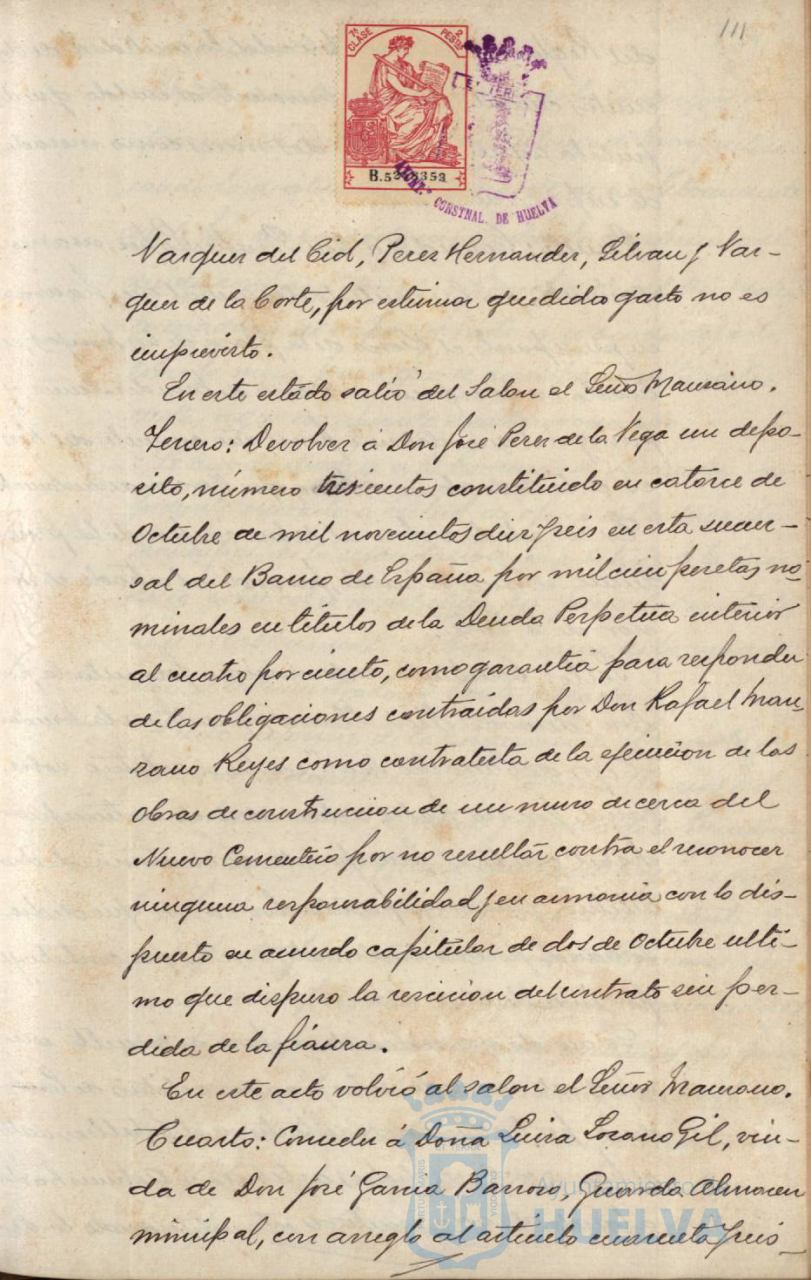 111
7ª CLASE 2 PESETAS
B.5
AYUNT.º CONSTNAL. DE HUELVA
Vazquez del Cid, Perez Hernandez, Gilvan y Vaz-
quez de la Corte, por estimar que dicho gasto no es
imprevisto.
En este estado salió del Salon el Señor Manzano.
Tercero: Devolver á Don José Perez de la Vega un depo-
sito, número trescientos constituido en catorce de
Octubre de mil novecientos diez y seis en esta sucur-
sal del Banco de España por mil cien pesetas no-
minales en titulos de la Deuda Perpetua interior
al cuatro por ciento, como garantia para responder
de las obligaciones contraidas por Don Rafael Man-
zano Reyes como contratista de la ejecucion de las
obras de construccion de un muro de cerca del
Nuevo Cementerio por no resultar contra el reconocer
ninguna responsabilidad y en armonia con lo dis-
puesto en acuerdo capitular de dos de Octubre ulti-
mo que dispuso la rescicion del contrato sin per-
dida de la fianza.
En este acto volvió al salon el Señor Manzano.
Cuarto: Conceder á Doña Luisa Lozano Gil, viu-
da de Don José Garcia Barroso, Guarda Almacen
municipal, con arreglo al articulo cuarenta y seis
Ayuntamiento
HUELVA